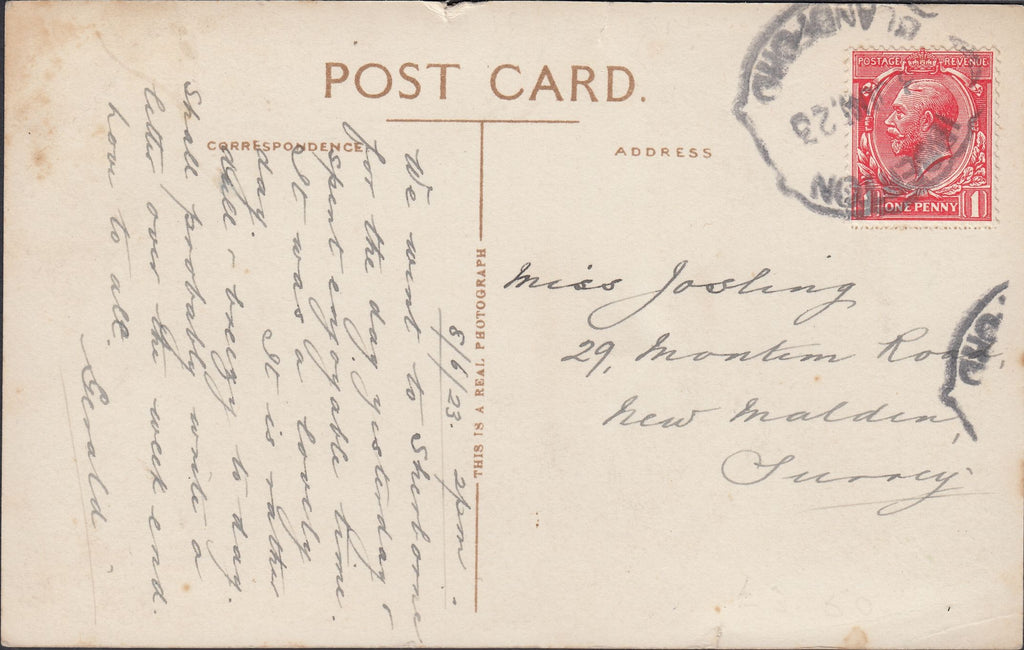 POST CARD.
CORRESPONDENCE
ADDRESS
THIS IS A REAL PHOTOGRAPH
8/6/23. 2pm.
We went to Sherborne
for the day yesterday &
spent enjoyable time.
It was a lovely
day. It is rather
dull & breezy to day.
Shall probably write a
letter over the week end.
Love to all.
Gerald.
Miss Josling
29, Montem Road,
New Malden,
Surrey
POSTAGE REVENUE
1 ONE PENNY 1
BLANDFORD
23